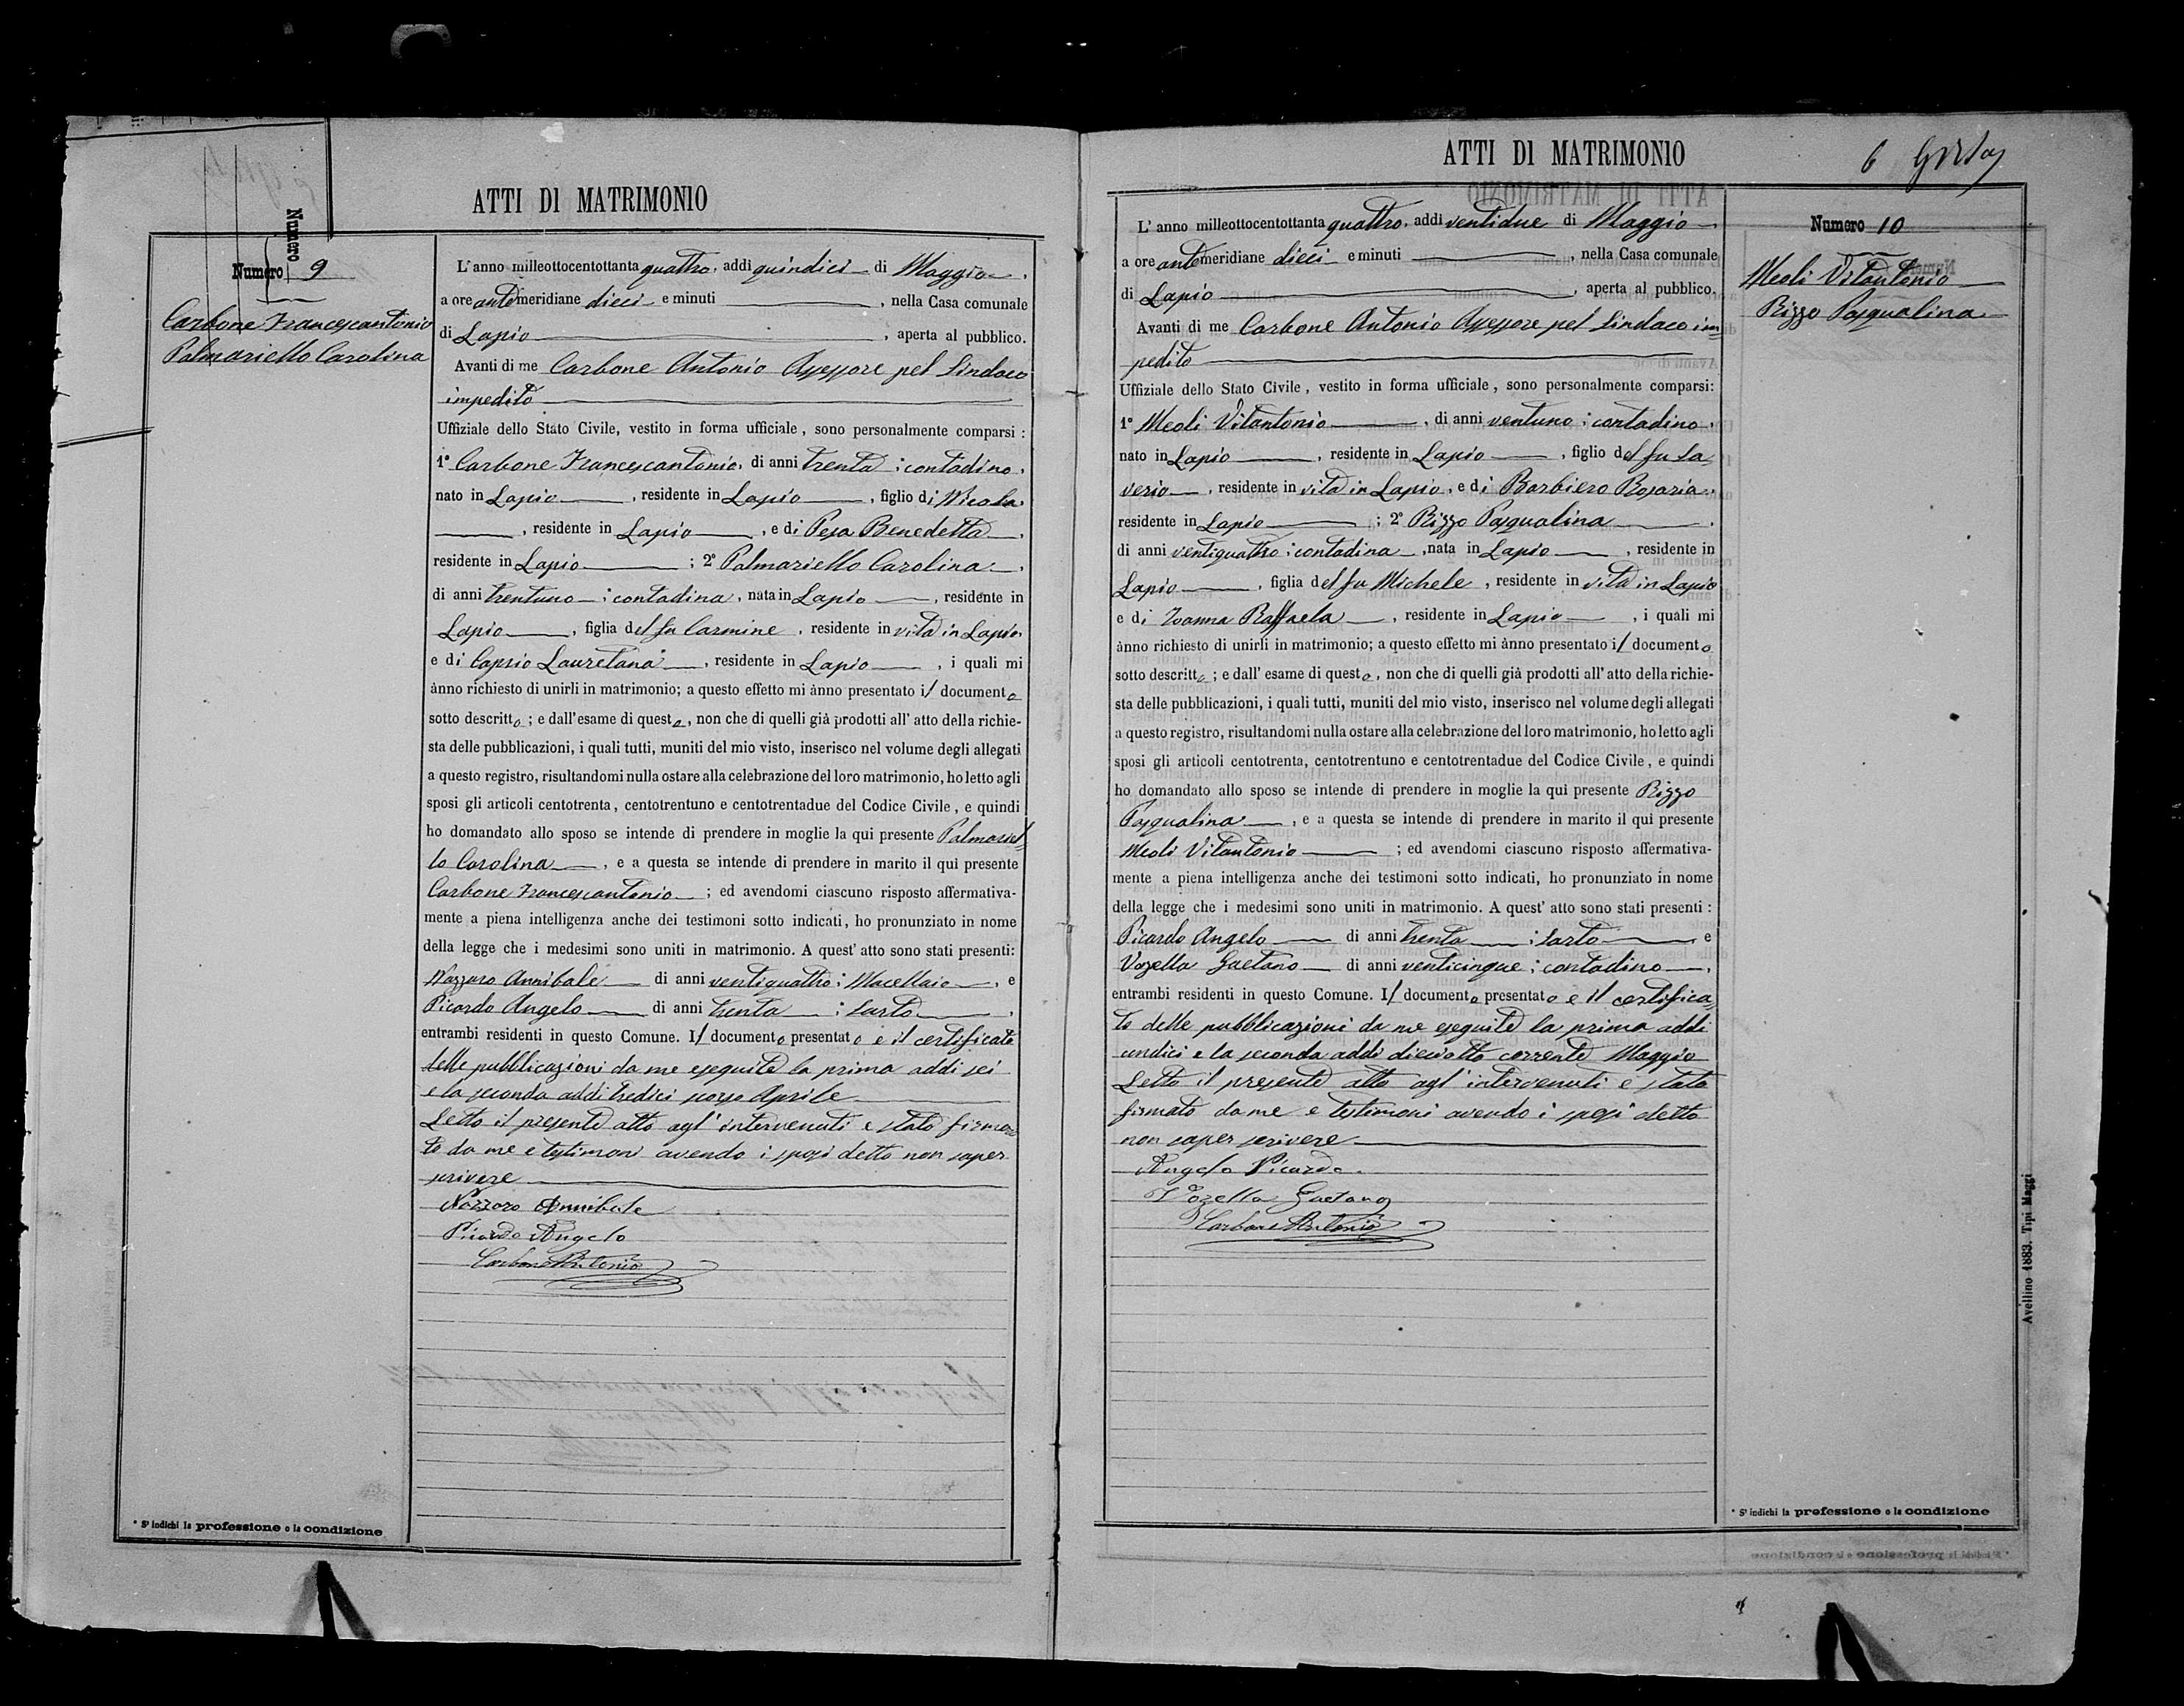 ATTI DI MATRIMONIO
Numero
Numero 9
Carbone Francescantonio
Palmariello Carolina
L'anno milleottocentottanta quattro, addì quindici di Maggio,
a ore antimeridiane dieci e minuti , nella Casa comunale
di Lapio , aperta al pubblico.
Avanti di me Carbone Antonio Assessore pel Sindaco
impedito
Uffiziale dello Stato Civile, vestito in forma ufficiale, sono personalmente comparsi:
1° Carbone Francescantonio, di anni trenta; contadino,
nato in Lapio , residente in Lapio , figlio di Nicola
, residente in Lapio , e di Pesa Benedetta ,
residente in Lapio ; 2° Palmariello Carolina ,
di anni trentuno ; contadina , nata in Lapio , residente in
Lapio , figlia del fu Carmine , residente in vita in Lapio
e di Lauretana , residente in Lapio , i quali mi
ànno richiesto di unirli in matrimonio; a questo effetto mi ànno presentato il documento
sotto descritto; e dall'esame di questo, non che di quelli già prodotti all'atto della richie-
sta delle pubblicazioni, i quali tutti, muniti del mio visto, inserisco nel volume degli allegati
a questo registro, risultandomi nulla ostare alla celebrazione del loro matrimonio, ho letto agli
sposi gli articoli centotrenta, centotrentuno e centotrentadue del Codice Civile, e quindi
ho domandato allo sposo se intende di prendere in moglie la qui presente Palmariel-
lo Carolina , e a questa se intende di prendere in marito il qui presente
Carbone Francescantonio ; ed avendomi ciascuno risposto affermativa-
mente a piena intelligenza anche dei testimoni sotto indicati, ho pronunziato in nome
della legge che i medesimi sono uniti in matrimonio. A quest'atto sono stati presenti:
Nazzaro Annibale di anni ventiquattro; Macellaio , e
Picardo Angelo di anni trenta ; sarto ,
entrambi residenti in questo Comune. Il documento presentato è il certificato
delle pubblicazioni da me eseguite la prima addì sei
e la seconda addì tredici scorso Aprile
Letto il presente atto agl'intervenuti è stato firma-
to da me e testimoni avendo i sposi detto non saper
scrivere
Nazzaro Annibale
Picardo Angelo
Carbone Antonio
* S'indichi la professione o la condizione
ATTI DI MATRIMONIO
6
Numero 10
Meoli Vitantonio
Rizzo Pasqualina
L'anno milleottocentottanta quattro, addì ventidue di Maggio
a ore antimeridiane dieci e minuti , nella Casa comunale
di Lapio , aperta al pubblico.
Avanti di me Carbone Antonio Assessore pel Sindaco im-
pedito
Uffiziale dello Stato Civile, vestito in forma ufficiale, sono personalmente comparsi:
1° Meoli Vitantonio , di anni ventuno; contadino,
nato in Lapio , residente in Lapio , figlio del fu Sa-
verio , residente in vita in Lapio, e di Barbiero Rosaria,
residente in Lapio ; 2° Rizzo Pasqualina ,
di anni ventiquattro; contadina , nata in Lapio , residente in
Lapio , figlia del fu Michele , residente in vita in Lapio
e di Ioanna Raffaela , residente in Lapio , i quali mi
ànno richiesto di unirli in matrimonio; a questo effetto mi ànno presentato il documento
sotto descritto; e dall'esame di questo, non che di quelli già prodotti all'atto della richie-
sta delle pubblicazioni, i quali tutti, muniti del mio visto, inserisco nel volume degli allegati
a questo registro, risultandomi nulla ostare alla celebrazione del loro matrimonio, ho letto agli
sposi gli articoli centotrenta, centotrentuno e centotrentadue del Codice Civile, e quindi
ho domandato allo sposo se intende di prendere in moglie la qui presente Rizzo
Pasqualina , e a questa se intende di prendere in marito il qui presente
Meoli Vitantonio ; ed avendomi ciascuno risposto affermativa-
mente a piena intelligenza anche dei testimoni sotto indicati, ho pronunziato in nome
della legge che i medesimi sono uniti in matrimonio. A quest'atto sono stati presenti:
Picardo Angelo di anni trenta ; sarto e
Vozella Gaetano di anni venticinque; contadino ,
entrambi residenti in questo Comune. Il documento presentato è il certifica-
to delle pubblicazioni da me eseguite la prima addì
undici e la seconda addì dieciotto corrente Maggio
Letto il presente atto agl'intervenuti è stato
firmato da me e testimoni avendo i sposi detto
non saper scrivere
Angelo Picardo
Vozella Gaetano
Carbone Antonio
Avellino 1883. Tipi Maggi
* S'indichi la professione o la condizione